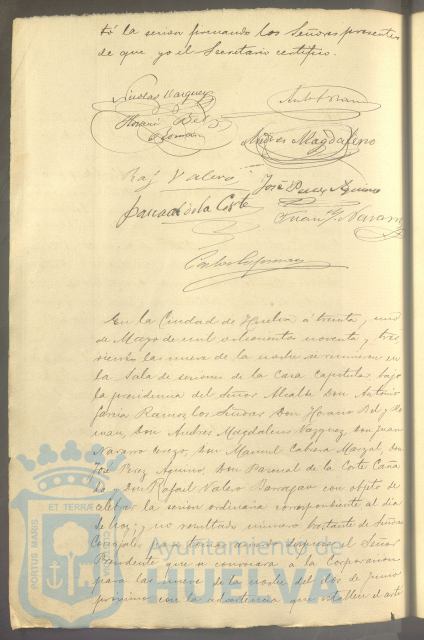 tó la sesion firmando los Señores presentes
de que yo el Secretario certifico.
Nicolas Vazquez
Horacio Bel
Andres Magdaleno
Raf Valero
José Perez Aquino
Pascual de la Corte
Juan Navarro
En la Ciudad de Huelva á treinta y uno
de Mayo de mil ochocientos noventa y tres
siendo las nueve de la noche se reunieron en
la Sala de sesiones de la Casa Capitular bajo
la presidencia del Señor Alcalde Don Antonio
García Ramos los Señores Don Horacio Bel y Ro
man, Don Andrés Magdaleno Vazquez, Don Juan
Navarro Don Manuel Cabrera Don
José Perez Aquino, Don Pascual de la Corte
y Don Rafael Valero Barragan con objeto de
celebrar la sesion ordinaria correspondiente al dia
de hoy; y no resultando número bastante de Señores
Concejales para tomar acuerdo dispuso el Señor
Presidente que se convocara á la Corporacion
para las nueve de la noche del dos de Junio
proximo con la advertencia que establece el arto
PORTUS MARIS
ET TERRÆ
CUSTODIA
Ayuntamiento de
HUELVA